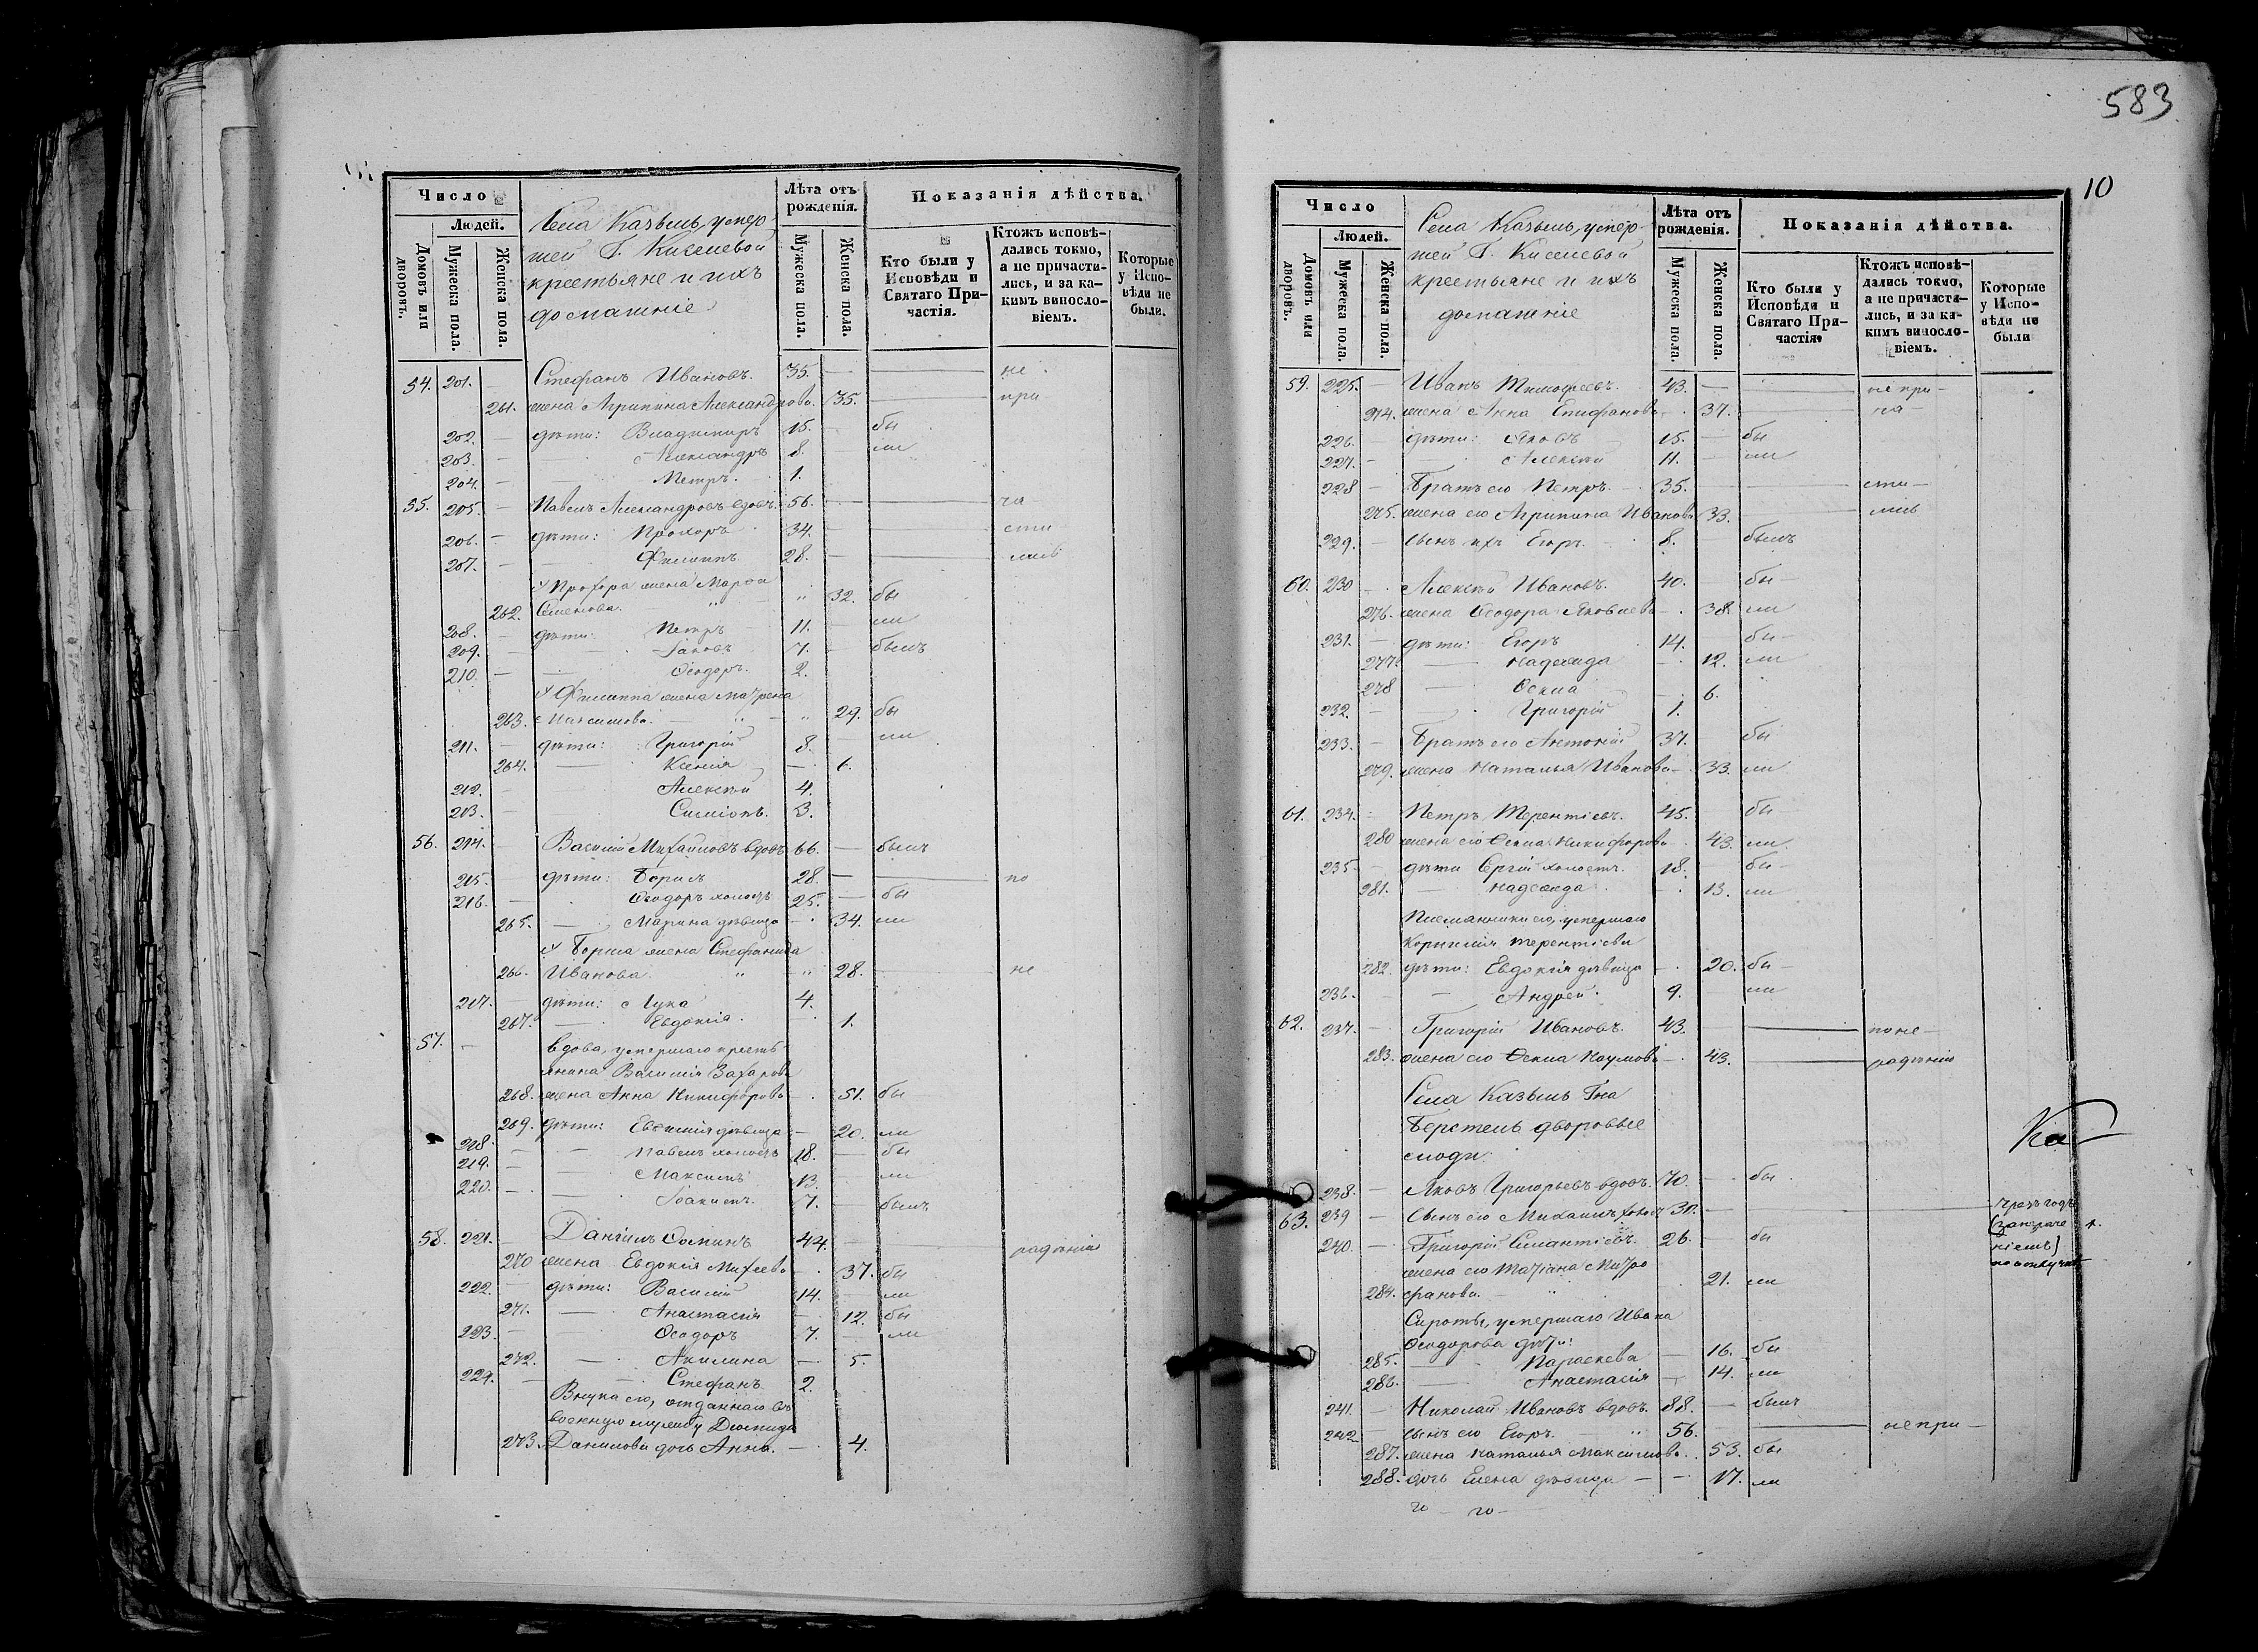 583
10
Число
Людей.
Домовъ или дворовъ.
Мужеска пола.
Женска пола.
Села Казъмь, умер-
шей Г. Киселевой
крестьяне и ихъ
домашніе
Лѣта отъ рожденія.
Мужеска пола.
Женска пола.
Показанія дѣйства.
Кто были у Исповѣди и Святаго Причастія.
Ктожъ исповѣ-
дались токмо,
а не причасти-
лись, и за ка-
кимъ винословіемъ.
Которые у Исповѣди не были.
54. 201. — Стефанъ Ивановъ. 35. — — не
261. жена Агрипина Александрова. 35. — при
202. — дѣти: Владимиръ 15. — бы
203. — Александръ 8. — ли
204. — Петръ. 1.
55. 205. — Павелъ Александровъ вдовъ. 56. — — ча
206. — дѣти: Прохоръ 34. — — сти
207. — Филиппъ. 28. — — лись
У Прохора жена Марфа
262. Семенова. „ „ 32. бы
208. — дѣти: Петръ 11. — ли
209. — Іаковъ 7. — былъ
210. — Ѳеодоръ. 2.
У Филиппа жена Матрена
263. Максимова. „ „ 29. бы
211. — дѣти: Григорій 8. — ли
264. — Ксенія — 6.
212. — Алексѣй 4.
213. — Симіонъ. 3.
56. 214. — Василій Михайловъ вдовъ 66. — былъ
215. — дѣти: Борисъ 28. — — по
216. — Ѳеодоръ холостъ 25. — бы
265. — Марина дѣвица — 34. ли
У Бориса жена Стефанида
266. Иванова. „ „ 28. — не
217. — дѣти: Лука 4.
267. — Евдокія. 1.
57. — вдова, умершаго кресть-
янина Василія Захарова
268. жена Анна Никифорова — 51. бы
269. дѣти: Евѳимія дѣвица — 20. ли
218. — Павелъ холостъ 18. — бы
219. — Максимъ 13. — ли
220. — Іоакимъ. 7. — былъ
58. 221. — Даніилъ Ѳоминъ 44. — — радѣнію
270 жена Евдокія Михеева — 37. бы
222. — дѣти: Василій 14. — ли
271. — Анастасія — 12. бы
223. — Ѳеодоръ 7. — ли
272. — Акилина — 5.
224. — Стефанъ 2.
Внука его, отданнаго въ
военную службу
273. Данилова дочь Анна. — 4.
Число
Людей.
Домовъ или дворовъ.
Мужеска пола.
Женска пола.
Села Казъмь, умер-
шей Г. Киселевой
крестьяне и ихъ
домашніе
Лѣта отъ рожденія.
Мужеска пола.
Женска пола.
Показанія дѣйства.
Кто были у Исповѣди и Святаго Причастія.
Ктожъ исповѣ-
дались токмо,
а не причасти-
лись, и за ка-
кимъ винословіемъ.
Которые у Исповѣди не были
59. 225. — Иванъ Тимофеевъ. 43. — — не при-
274. жена Анна Епифанова — 37. — ча-
226. — дѣти: Яковъ 15. — бы
227. — Алексѣй 11. — ли
228 — Братъ его Петръ. — 35. — — сти-
275. жена его Агрипина Иванова 33. — лись
229. — Сынъ ихъ Егоръ. — 8. — былъ
60. 230 — Алексѣй Ивановъ. 40. — бы
276. жена Ѳеодора Яковлева — 38. ли
231. — дѣти: Егоръ 14. — бы-
277. — Надежда — 12. ли
278 — Ѳекла — 6.
232. — Григорій 1.
233. — Братъ его Антоній 37. — бы
279. жена Наталья Иванова — 33. ли
61. 234. — Петръ Терентіевъ. 45. бы
280 жена его Ѳекла Никифорова 43. ли
235. — дѣти Сергій холостъ. 18. бы
281. — Надежда — 13. ли
Племянники его, умершаго
Корнилія Терентіева
282. дѣти: Евдокія дѣвица — 20. бы-
236. — Андрей 9. ли
62. 237. — Григорій Ивановъ. 43. — по не-
283. жена его Ѳекла Наумова — 43. — радѣнію
Села Казъмь Гна
Берстель дворовые
люди.
238. — Яковъ Григорьевъ вдовъ. 70. — бы
63. 239 — Сынъ его Михаилъ холост. 31. — чрезъ годъ
240. — Григорій 26. — бы
жена его Татіана Митро
284. фанова. — „ 21. ли
Сироты, умершаго Ивана
Ѳеодорова дѣти:
285. — Параскева — 16. бы
286. — Анастасія — 14. ли
241. — Николай Ивановъ вдовъ. 88. — былъ
242 — сынъ его Егоръ. — „ 56. — не при-
287. жена Наталья Максимова. 53. бы
288. дочь Елена дѣвица — 17. ли